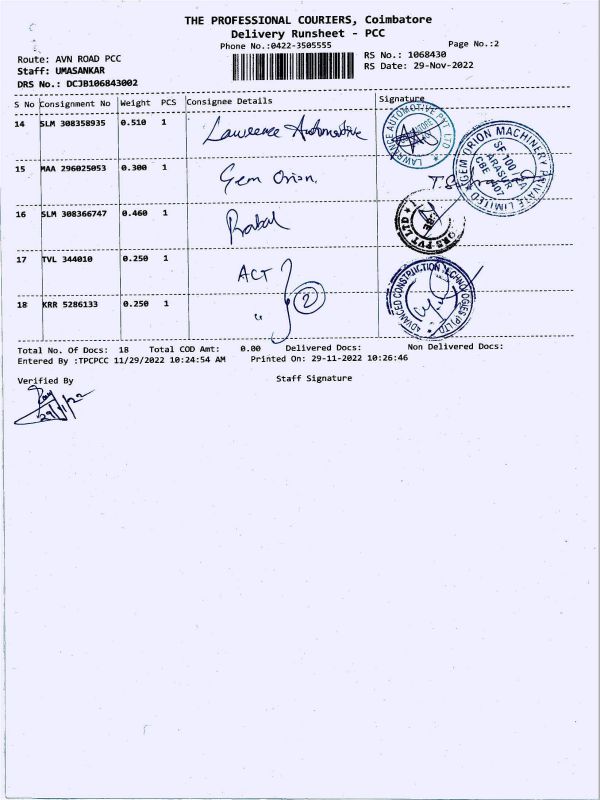 THE PROFESSIONAL COURIERS, Coimbatore
Delivery Runsheet - PCC
Phone No.:0422-3505555
Page No.:2
Route: AVN ROAD PCC
RS No.: 1068430
Staff: UMASANKAR
RS Date: 29-Nov-2022
DRS No.: DCJB106843002
S No Consignment No Weight PCS Consignee Details Signature
14 SLM 308358935 0.510 1 Lawrence Automotive
LAWRANCE AUTOMOTIVE PVT LTD
15 MAA 296025053 0.300 1 Gem Orion.
GEM ORION MACHINERY PRIVATE LIMITED
SF-100/2A
ARASUR
CBE 407
16 SLM 308366747 0.460 1
ORS PVT LTD
17 TVL 344010 0.250 1 ACT
2
ADVANCED CONSTRUCTION TECHNOLOGIES (P) LTD
18 KRR 5286133 0.250 1 "
Total No. Of Docs: 18 Total COD Amt: 0.00 Delivered Docs: Non Delivered Docs:
Entered By :TPCPCC 11/29/2022 10:24:54 AM Printed On: 29-11-2022 10:26:46
Verified By Staff Signature
29/11/22